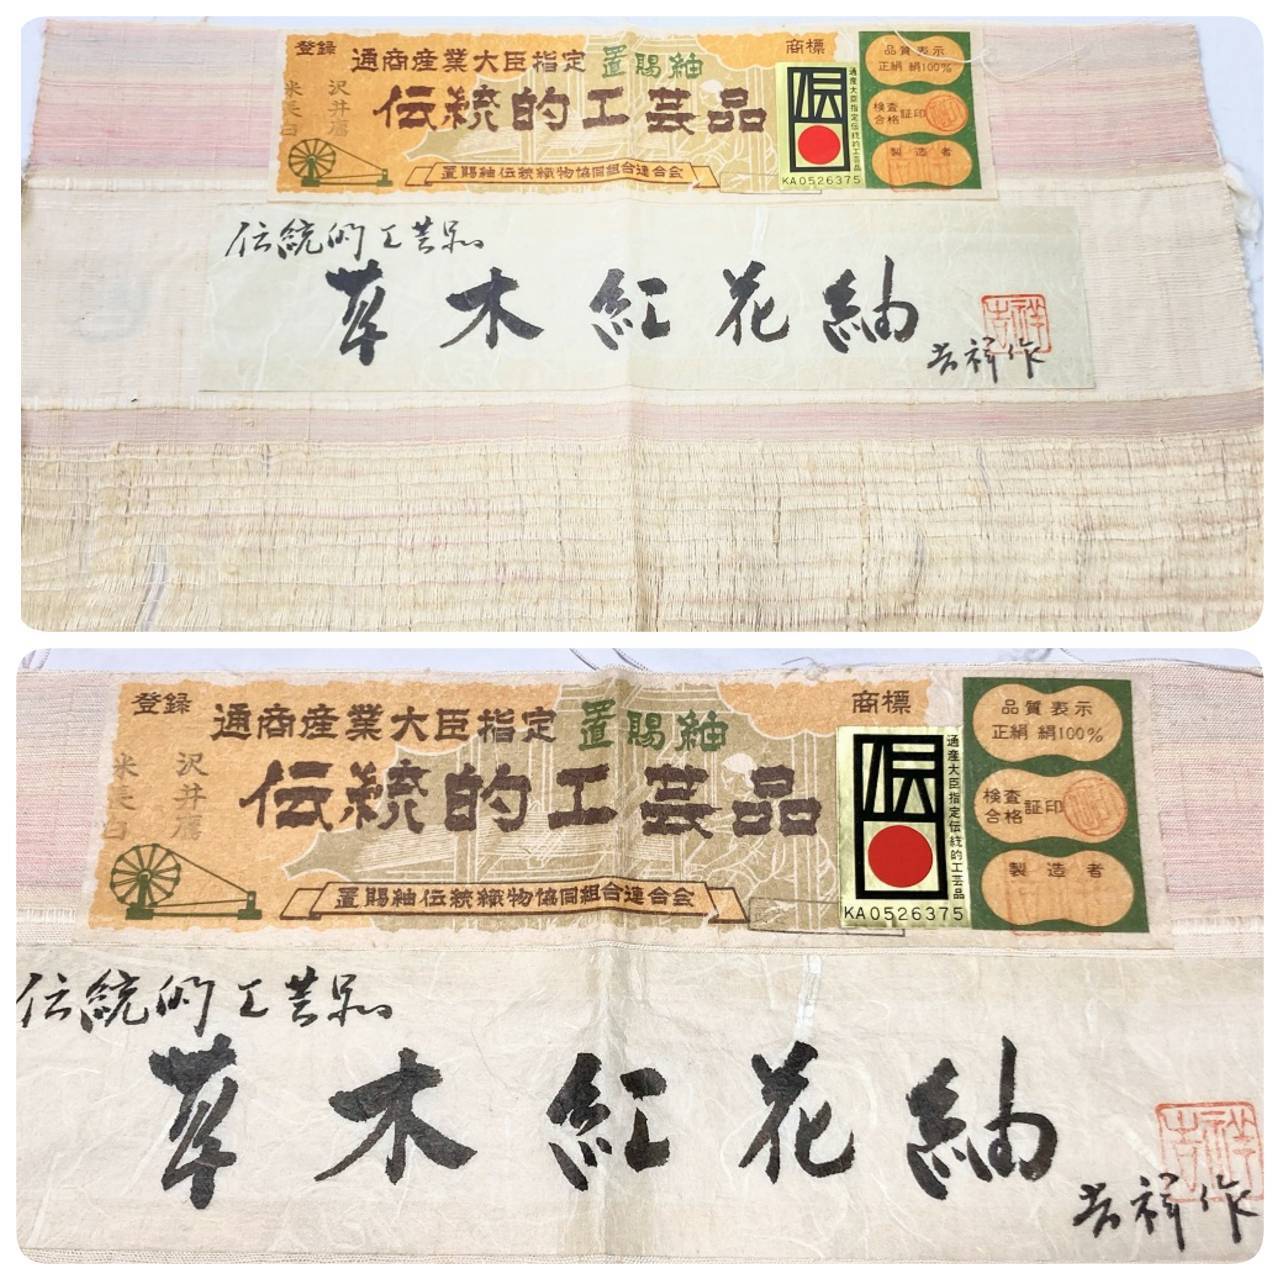 登録
商標
通商産業大臣指定 置賜紬
伝統的工芸品
米 沢
長 井
白 鷹
置賜紬伝統織物協同組合連合会
伝
通産大臣指定伝統的工芸品
KA0526375
品質表示
正絹 絹100%
検査
合格
証印
製造者
伝統的工芸品
草木紅花紬
吉祥
吉祥作
登録
商標
通商産業大臣指定 置賜紬
伝統的工芸品
米 沢
長 井
白 鷹
置賜紬伝統織物協同組合連合会
伝
通産大臣指定伝統的工芸品
KA0526375
品質表示
正絹 絹100%
検査
合格
証印
製造者
伝統的工芸品
草木紅花紬
吉祥
吉祥作